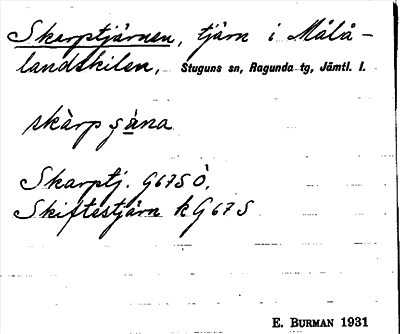 Skarptjärnen, tjärn i Målå-
landskilen, Stuguns sn, Ragunda tg, Jämtl. l.
skàrpʂä̀na
Skarptj. G67SÖ,
Skiftestjärn kG67S
E. BURMAN 1931